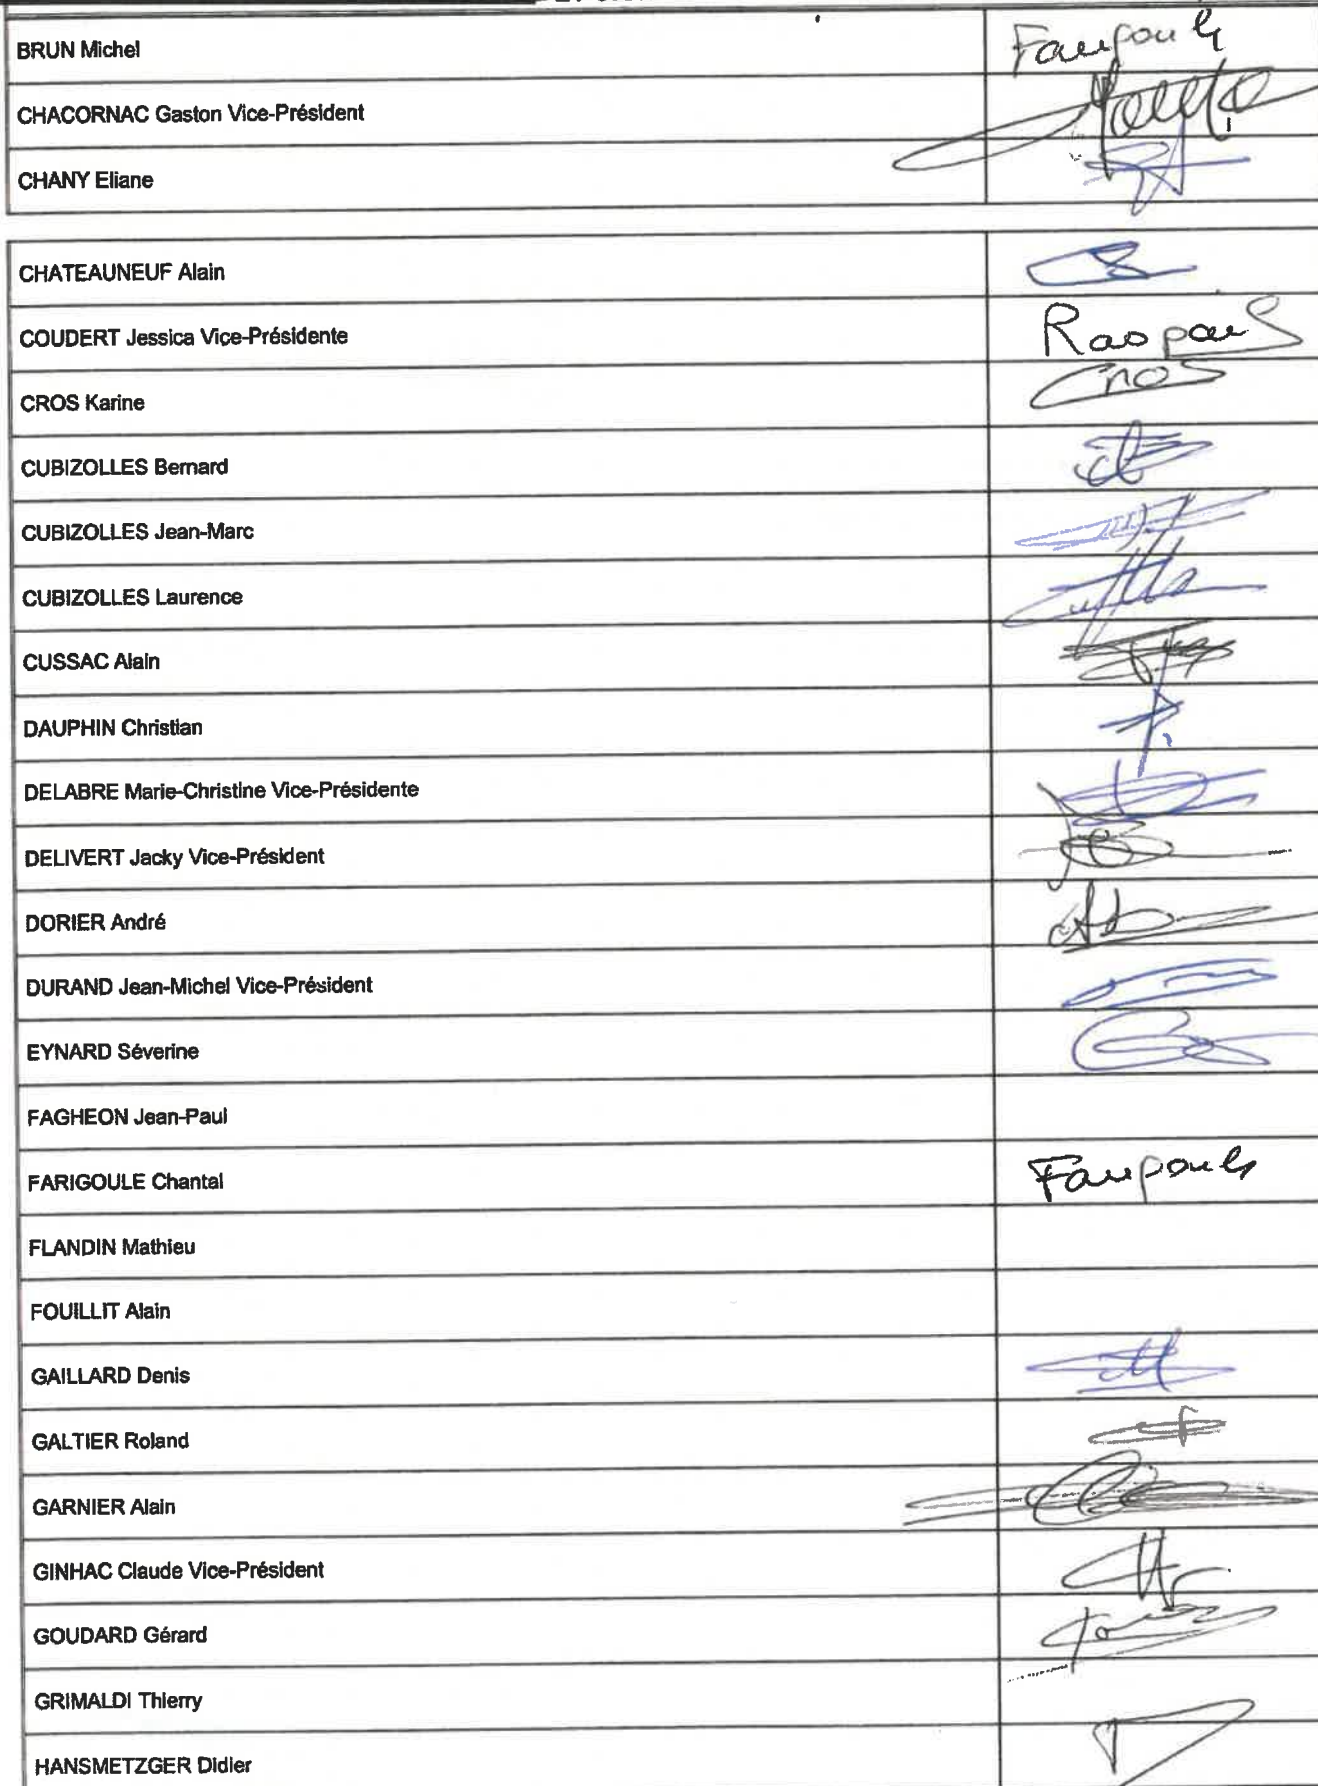 BRUN Michel
CHACORNAC Gaston Vice-Président
CHANY Eliane
CHATEAUNEUF Alain
COUDERT Jessica Vice-Présidente Raspail
CROS Karine Cros
CUBIZOLLES Bernard
CUBIZOLLES Jean-Marc
CUBIZOLLES Laurence
CUSSAC Alain
DAUPHIN Christian
DELABRE Marie-Christine Vice-Présidente
DELIVERT Jacky Vice-Président
DORIER André
DURAND Jean-Michel Vice-Président
EYNARD Séverine
FAGHEON Jean-Paul
FARIGOULE Chantal
FLANDIN Mathieu
FOUILLIT Alain
GAILLARD Denis
GALTIER Roland
GARNIER Alain
GINHAC Claude Vice-Président
GOUDARD Gérard
GRIMALDI Thierry
HANSMETZGER Didier